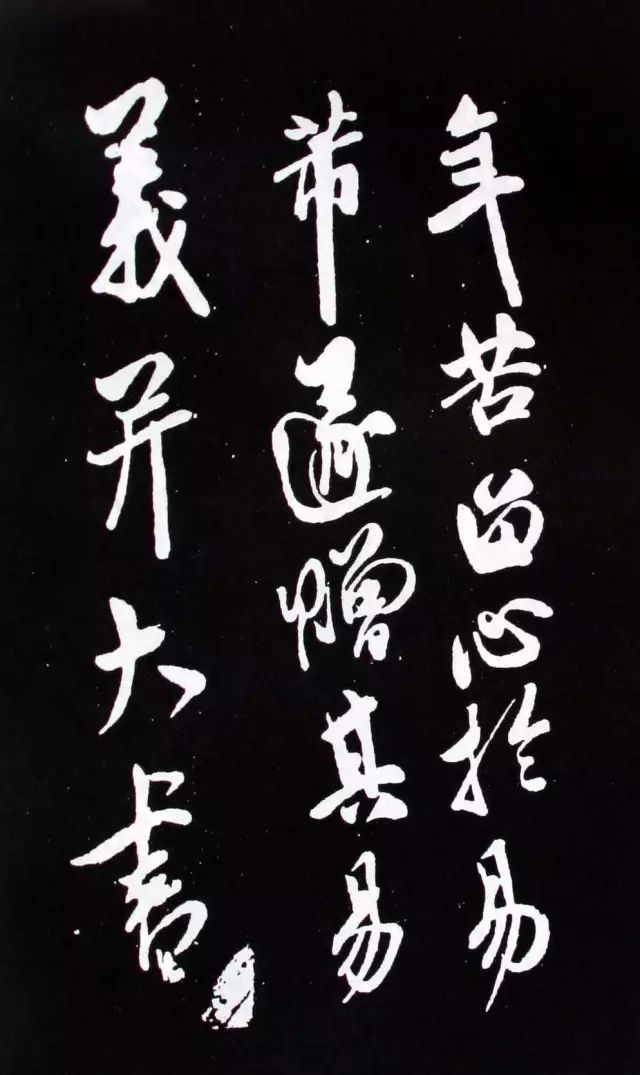 年苦留心於易
芾遂贈其易
義并大書